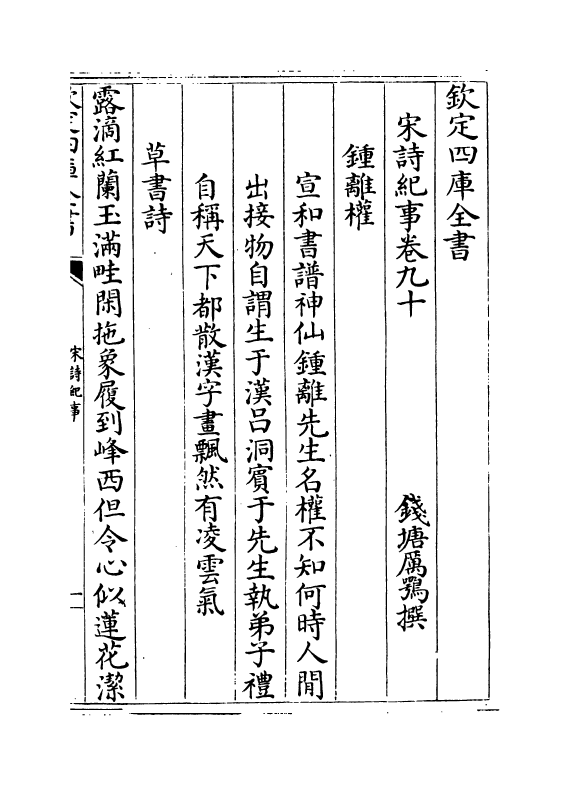 欽定四庫全書
宋詩紀事卷九十
錢塘厲鶚撰
鍾離權
宣和書譜神仙鍾離先生名權不知何時人閒
出接物自謂生于漢呂洞賓于先生執弟子禮
自稱天下都散漢字畫飄然有凌雲氣
草書詩
露滴紅蘭玉滿畦閑拖象履到峰西但令心似蓮花潔
宋詩紀事
一